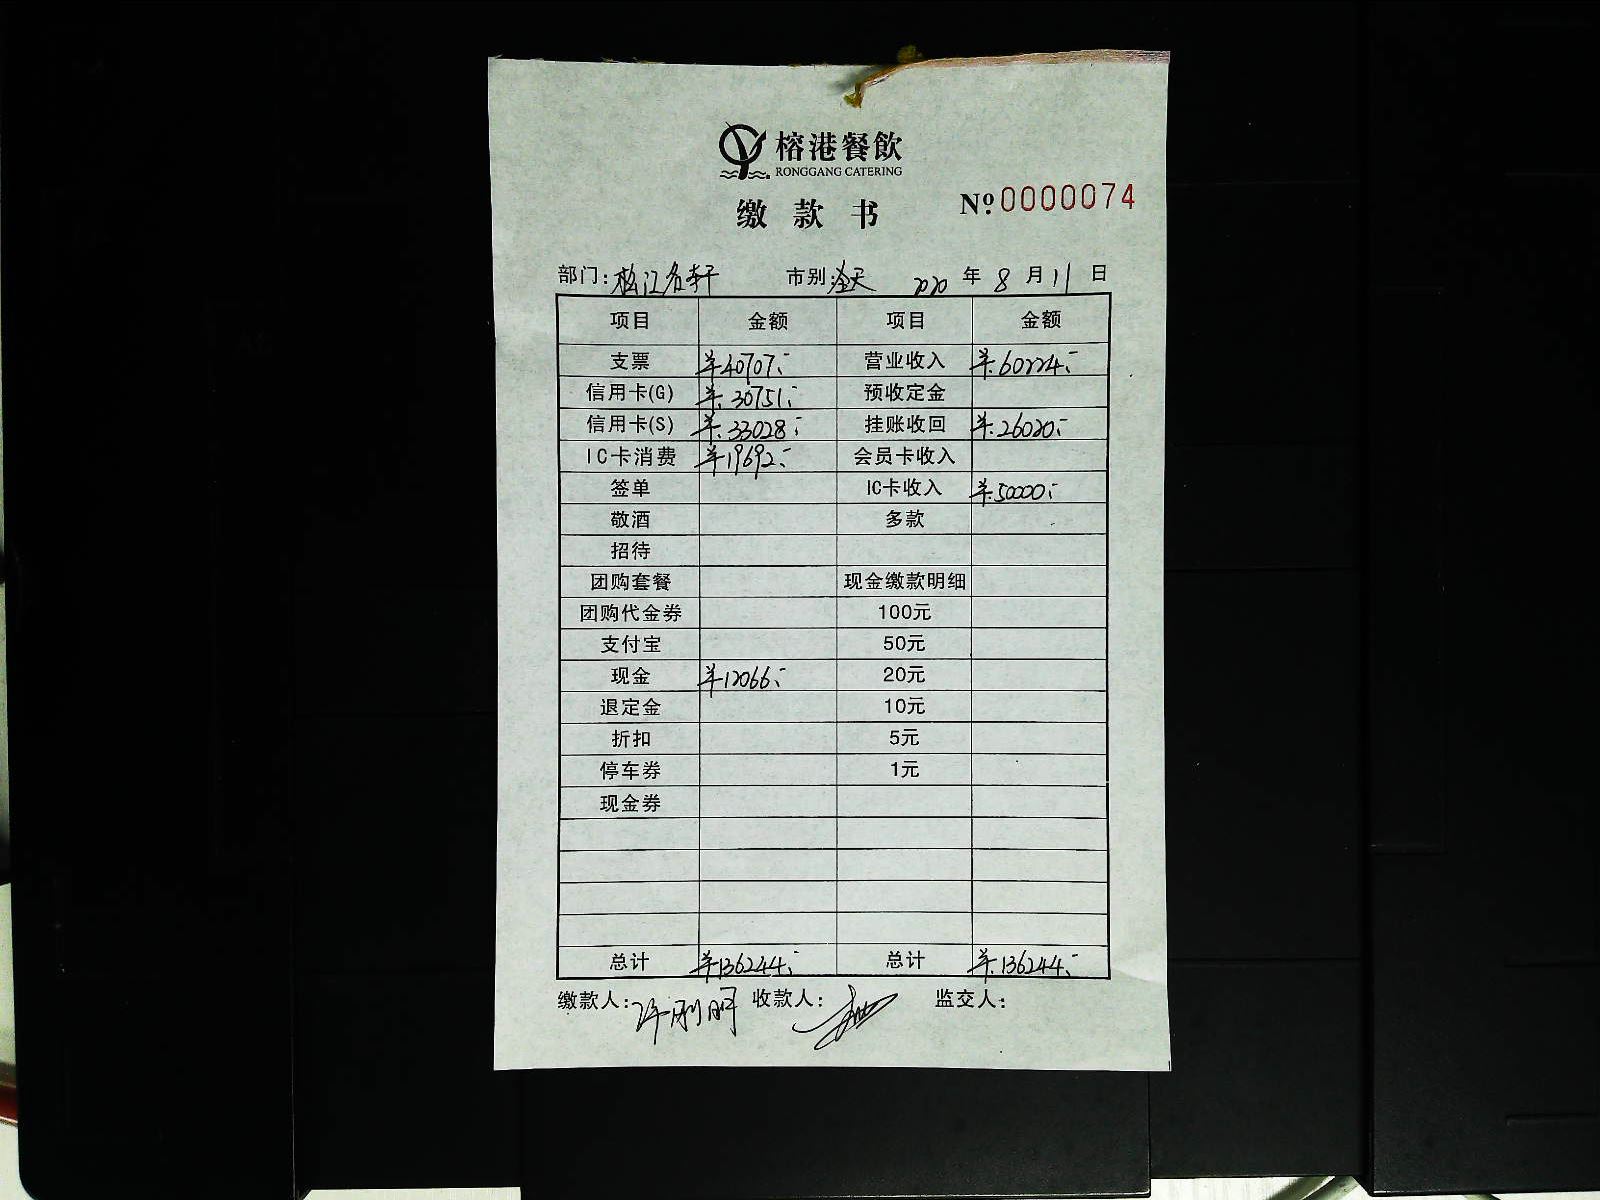 榕港餐飲
RONGGANG CATERING
缴款书 Nº 0000074
部门: 松江名轩 市别: 全天 2020 年 8 月 11 日
项目 金额 项目 金额
支票 ¥40707.- 营业收入 ¥60224.-
信用卡(G) ¥30751.- 预收定金
信用卡(S) ¥33028.- 挂账收回 ¥26020.-
IC卡消费 ¥19692.- 会员卡收入
签单 IC卡收入 ¥50000.-
敬酒 多款
招待
团购套餐 现金缴款明细
团购代金券 100元
支付宝 50元
现金 ¥12066.- 20元
退定金 10元
折扣 5元
停车券 1元
现金券
总计 ¥136244.- 总计 ¥136244.-
缴款人: 许刚明 收款人: 监交人: